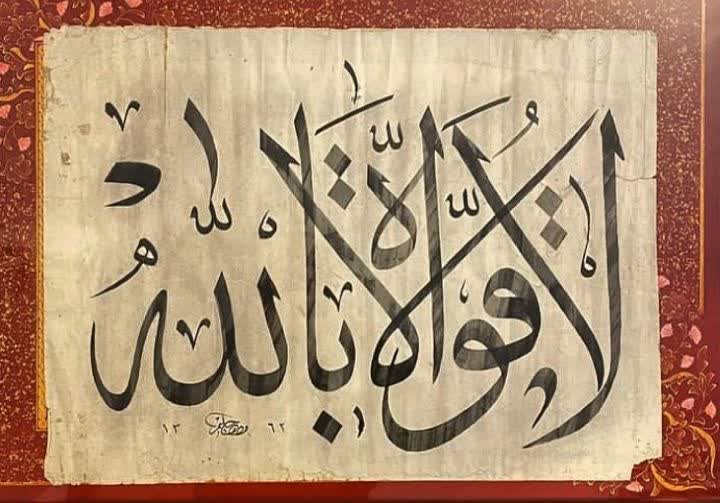 لا قُوَّةَ إلّا بالله
١٣ ٦٢